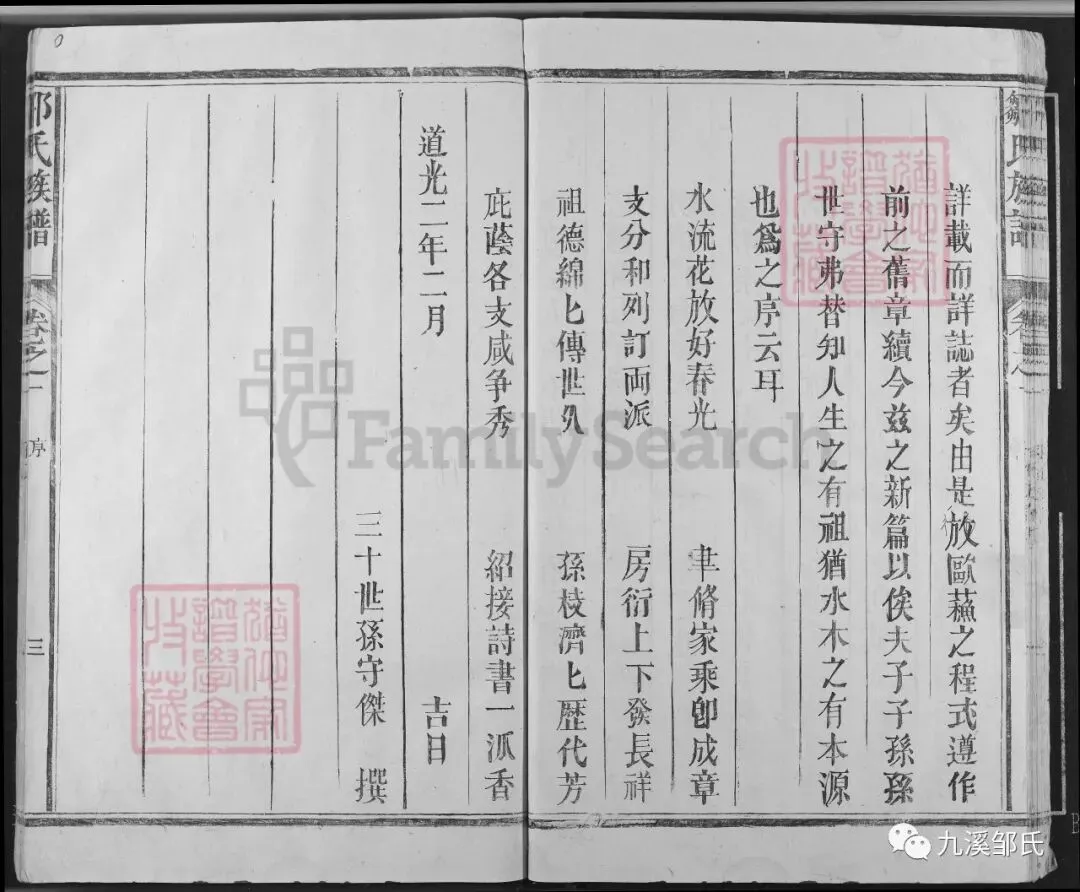 詳載而詳誌者矣由是放歐蘓之程式遵作
前之舊章續今茲之新篇以俟夫子子孫孫
世守弗替知人生之有祖猶水木之有本源
也爲之序云耳
水流花放好春光 聿脩家乘卽成章
支分和列訂両派 房衍上下發長祥
祖德綿匕傳世久 孫枝濟匕歷代芳
庇蔭各支咸争秀 紹接詩書一派香
道光二年二月 吉日
三十世孫守傑 撰
鄒氏族譜 卷之一 序 三
FamilySearch
九溪邹氏